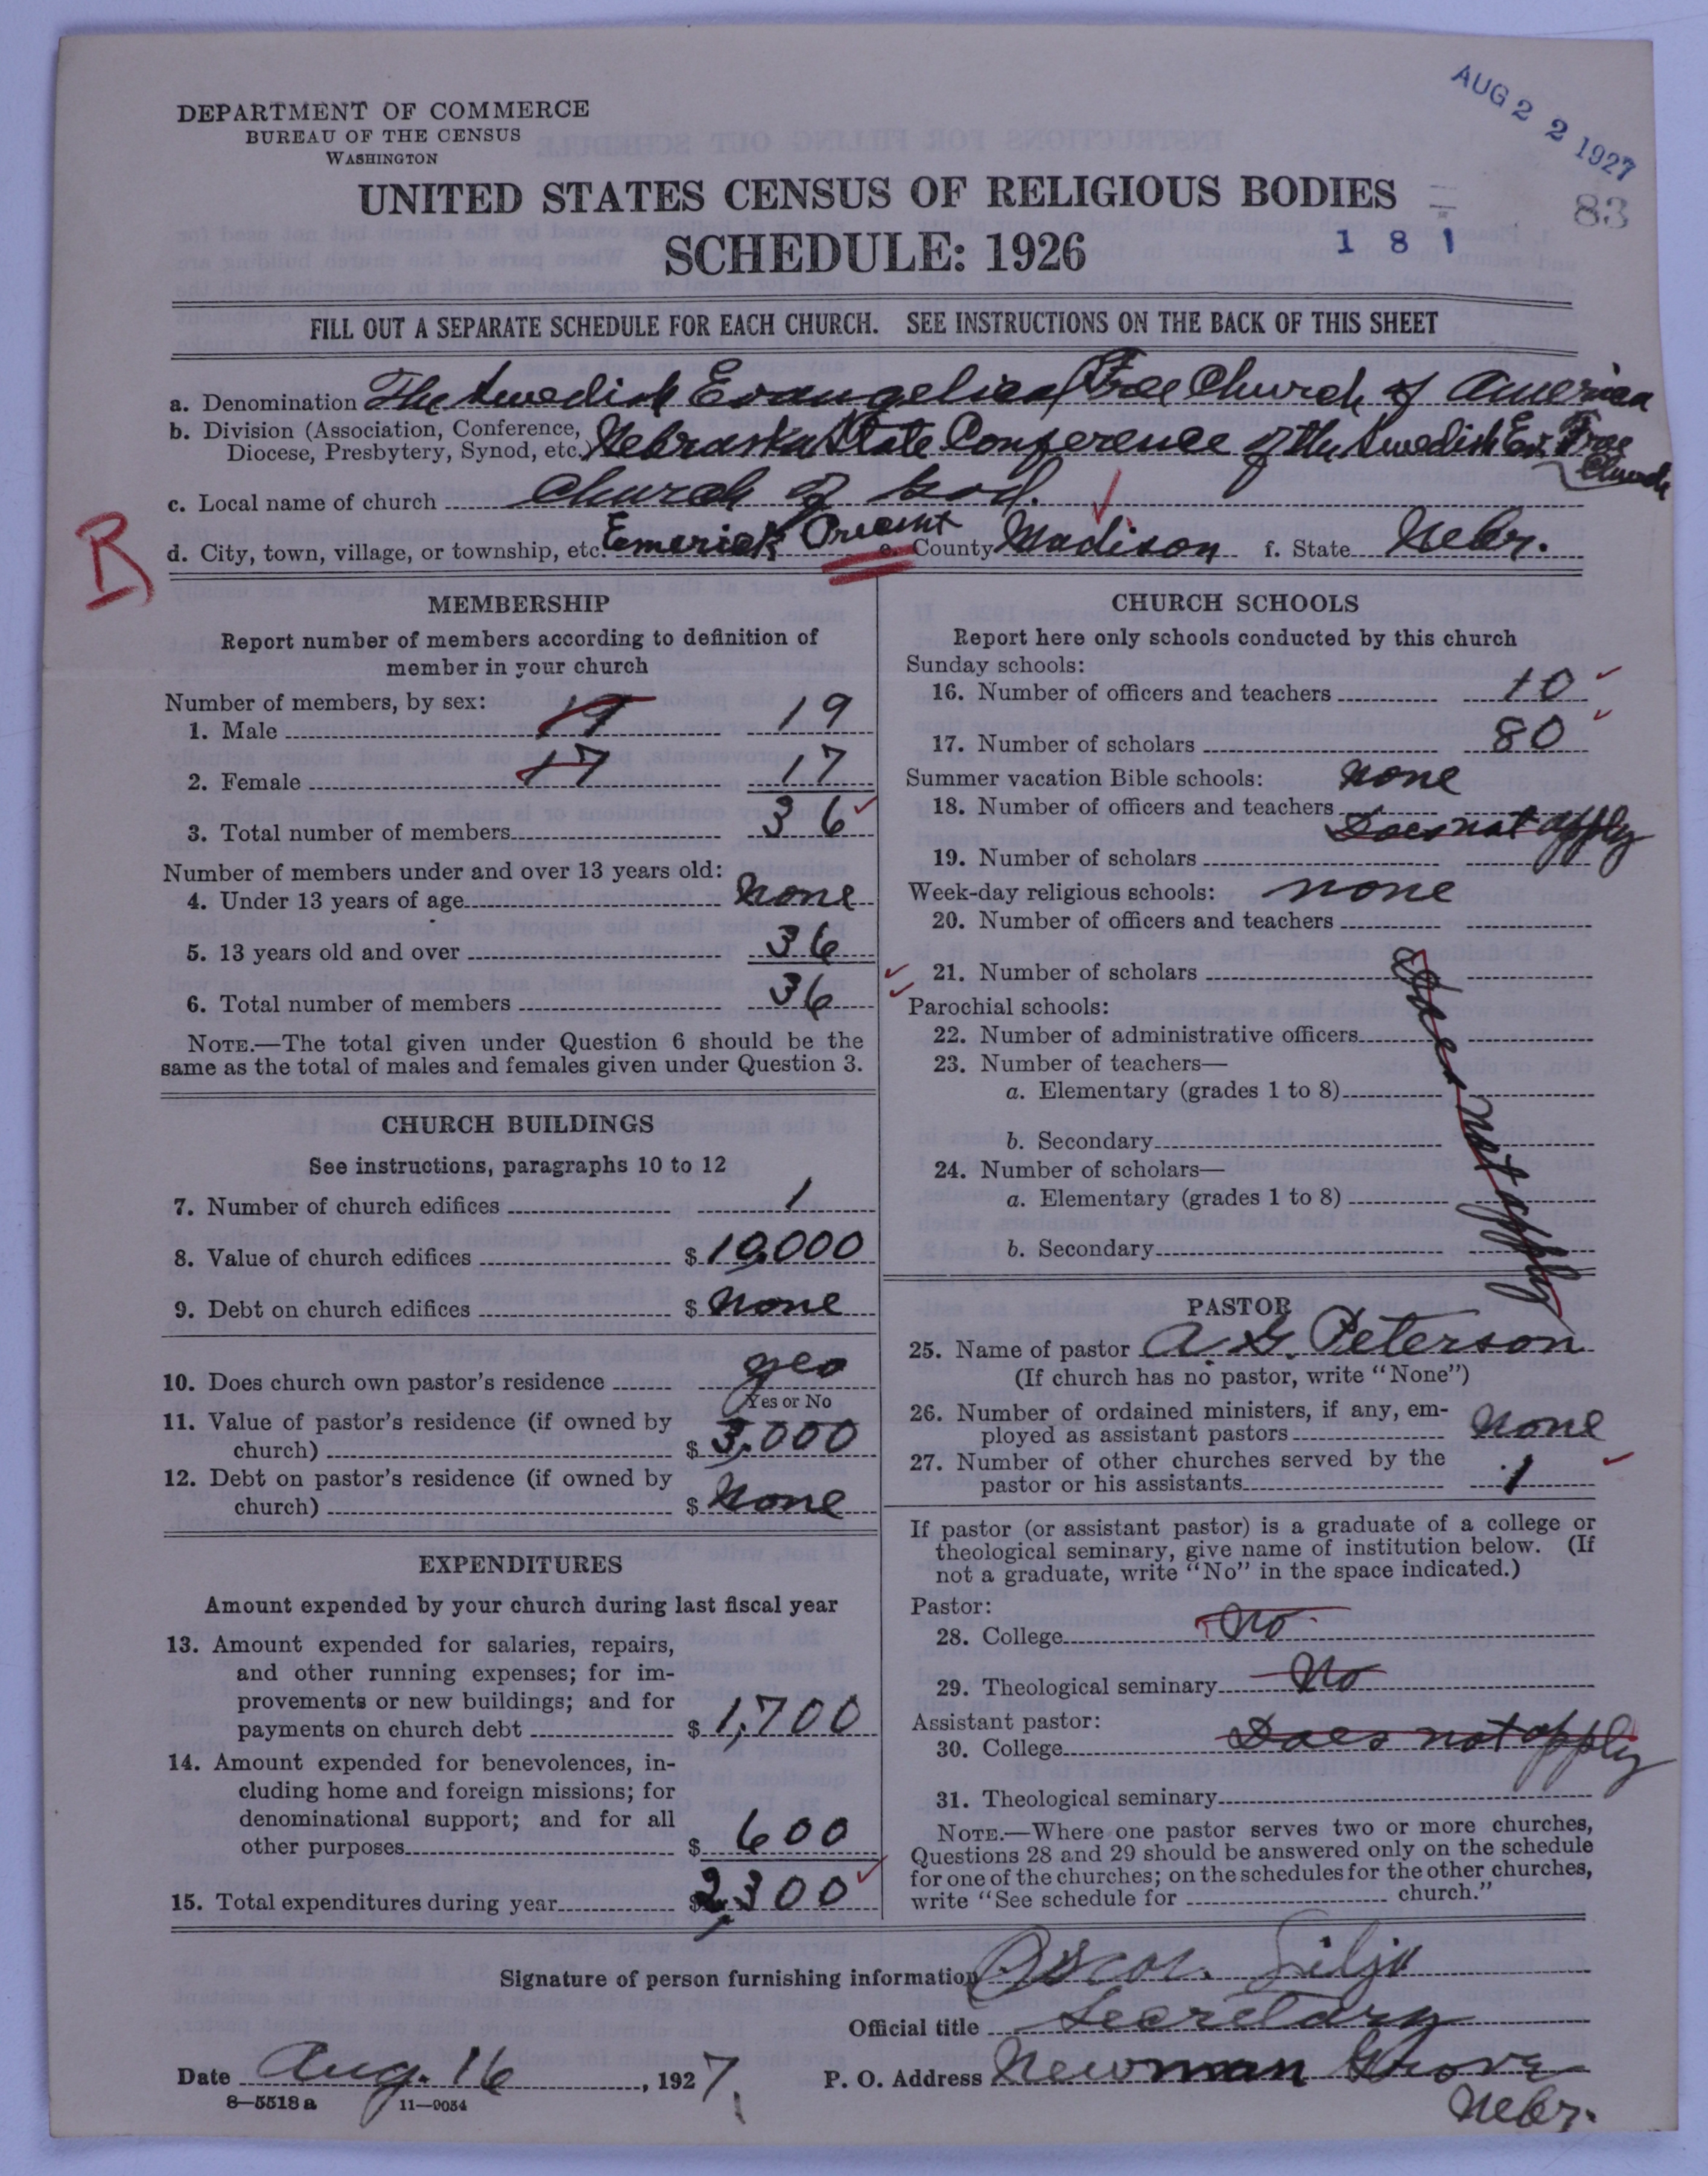 AUG 22 1927
83
181
DEPARTMENT OF COMMERCE
BUREAU OF THE CENSUS
WASHINGTON
UNITED STATES CENSUS OF RELIGIOUS BODIES
SCHEDULE: 1926
FILL OUT A SEPARATE SCHEDULE FOR EACH CHURCH. SEE INSTRUCTIONS ON THE BACK OF THIS SHEET
a. Denomination The Swedish Evangelical Free Church of America
b. Division (Association, Conference,
Diocese, Presbytery, Synod, etc.) Nebraska State Conference of the Swedish Ev. Free
Church
c. Local name of church Church of God.
R
d. City, town, village, or township, etc. Emerick Precinct e. County Madison f. State Nebr.
MEMBERSHIP
Report number of members according to definition of
member in your church
Number of members, by sex:
1. Male 19 19
2. Female 17 17
3. Total number of members 36
Number of members under and over 13 years old:
4. Under 13 years of age None
5. 13 years old and over 36
6. Total number of members 36
NOTE.—The total given under Question 6 should be the
same as the total of males and females given under Question 3.
CHURCH BUILDINGS
See instructions, paragraphs 10 to 12
7. Number of church edifices 1
8. Value of church edifices $ 10,000
9. Debt on church edifices $ None
10. Does church own pastor's residence yes
Yes or No
11. Value of pastor's residence (if owned by
church) $ 3,000
12. Debt on pastor's residence (if owned by
church) $ None
EXPENDITURES
Amount expended by your church during last fiscal year
13. Amount expended for salaries, repairs,
and other running expenses; for im-
provements or new buildings; and for
payments on church debt $ 1,700
14. Amount expended for benevolences, in-
cluding home and foreign missions; for
denominational support; and for all
other purposes $ 600
15. Total expenditures during year $ 2,300
CHURCH SCHOOLS
Report here only schools conducted by this church
Sunday schools:
16. Number of officers and teachers 10
17. Number of scholars 80
Summer vacation Bible schools: None
18. Number of officers and teachers
Does not apply
19. Number of scholars
Week-day religious schools: none
20. Number of officers and teachers
21. Number of scholars
Parochial schools:
22. Number of administrative officers
23. Number of teachers—
a. Elementary (grades 1 to 8)
b. Secondary
24. Number of scholars—
a. Elementary (grades 1 to 8)
b. Secondary
Does not apply
PASTOR
25. Name of pastor A. G. Peterson
(If church has no pastor, write "None")
26. Number of ordained ministers, if any, em-
ployed as assistant pastors None
27. Number of other churches served by the
pastor or his assistants 1
If pastor (or assistant pastor) is a graduate of a college or
theological seminary, give name of institution below. (If
not a graduate, write "No" in the space indicated.)
Pastor:
28. College No
29. Theological seminary No
Assistant pastor:
30. College Does not apply
31. Theological seminary
NOTE.—Where one pastor serves two or more churches,
Questions 28 and 29 should be answered only on the schedule
for one of the churches; on the schedules for the other churches,
write "See schedule for church."
Signature of person furnishing information Oscar Lilja
Official title Secretary
Date Aug. 16, 1927. P. O. Address Newman Grove
Nebr.
8—5518a 11—9054